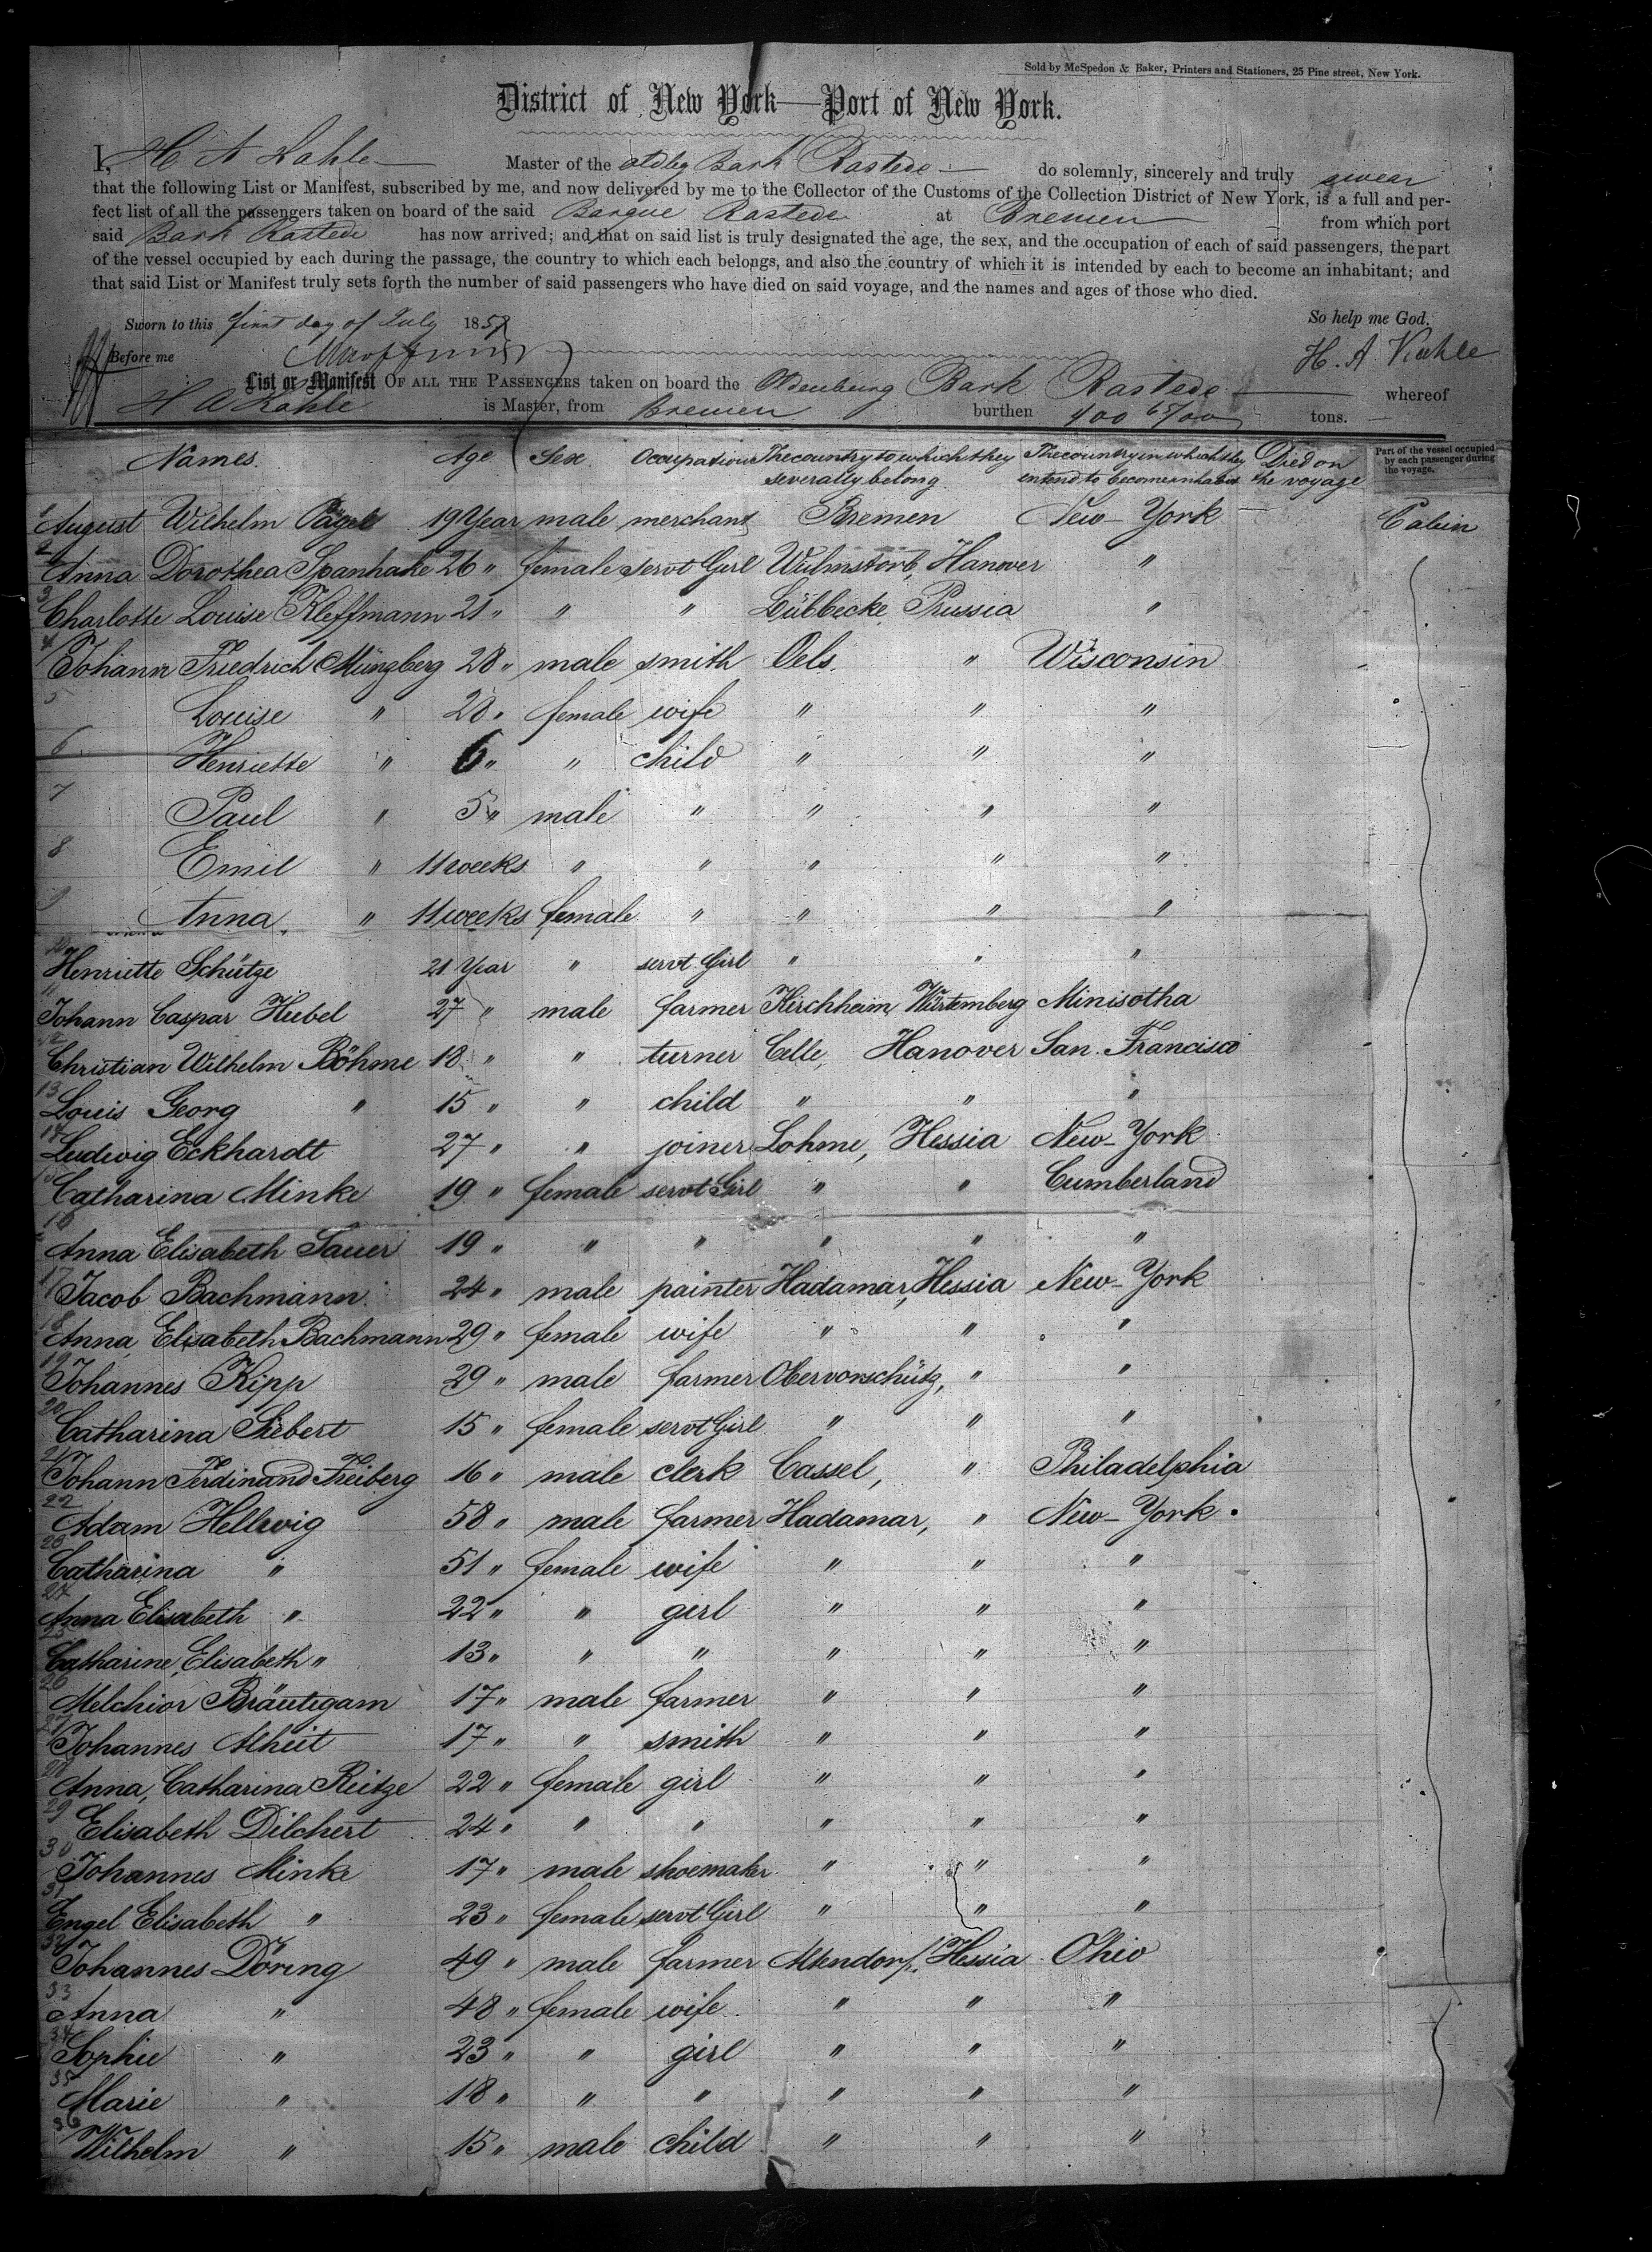 Sold by McSpedon & Baker, Printers and Stationers, 25 Pine street, New York.
District of New York—Port of New York.
I, H A Kahle Master of the Oldbg Bark Rastede do solemnly, sincerely and truly swear
that the following List or Manifest, subscribed by me, and now delivered by me to the Collector of the Customs of the Collection District of New York, is a full and per-
fect list of all the passengers taken on board of the said Barque Rastede at Bremen from which port
said Bark Rastede has now arrived; and that on said list is truly designated the age, the sex, and the occupation of each of said passengers, the part
of the vessel occupied by each during the passage, the country to which each belongs, and also the country of which it is intended by each to become an inhabitant; and
that said List or Manifest truly sets forth the number of said passengers who have died on said voyage, and the names and ages of those who died.
Sworn to this first day of July 185 So help me God.
Before me H. A. Kahle
List or Manifest OF ALL THE PASSENGERS taken on board the Oldenburg Bark Rastede whereof
H A Kahle is Master, from Bremen burthen 400 tons.
Names. Age Sex. Occupation The country to which they severally belong. The country in which they intend to become inhabit Died on the voyage Part of the vessel occupied by each passenger during the voyage.
1 August Wilhelm 19 Year male merchant Bremen New-York Cabin
2 Anna Dorothea Spanhake 26 " female servt Girl Wulmstorb, Hanover "
3 Charlotte Louise Kleffmann 21 " " " Lübbecke Prussia "
4 Johann Friedrich Müngberg 28 " male smith Oels. " Wisconsin
5 Louise " 28 " female wife " " "
6 Henriette " 6 " " child " " "
7 Paul " 5 " male " " " "
8 Emil " 11 weeks " " " " "
9 Anna " 11 weeks female " " " "
10 Henriette Schütze 21 Year " servt Girl " " "
11 Johann Caspar Hubel 27 " male farmer Kirchheim, Würtemberg Minisotha
12 Christian Wilhelm Böhme 18 " " turner Celle, Hanover San. Francisco
13 Louis Georg " 15 " " child " " "
14 Ludwig Eckhardt 27 " " joiner Lohme, Hessia New-York
15 Catharina Minke 19 " female servt Girl " " Cumberland
16 Anna Elisabeth Sauer 19 " " " " " "
17 Jacob Bachmann 24 " male painter Hadamar, Hessia New-York
18 Anna Elisabeth Bachmann 29 " female wife " " "
19 Johannes Kipp 29 " male farmer Obervorschütz, " "
20 Catharina Siebert 15 " female servt Girl " " "
21 Johann Ferdinand Freiberg 16 " male clerk Cassel, " Philadelphia
22 Adam Hellwig 58 " male farmer Hadamar, " New-York.
23 Catharina " 51 " female wife " " "
24 Anna Elisabeth " 22 " " girl " " "
25 Catharine Elisabeth " 13 " " " " " "
26 Melchior Bräutigam 17 " male farmer " " "
27 Johannes Alheit 17 " " smith " " "
28 Anna, Catharina Reitze 22 " female girl " " "
29 Elisabeth Dilchert 24 " " " " " "
30 Johannes Minke 17 " male shoemaker " " "
31 Engel Elisabeth " 23 " female servt Girl " " "
32 Johannes Döring 49 " male farmer Altendorf, Hessia Ohio
33 Anna " 48 " female wife " " "
34 Sophie " 23 " " girl " " "
35 Marie " 18 " " " " " "
36 Wilhelm " 15 " male child " " "